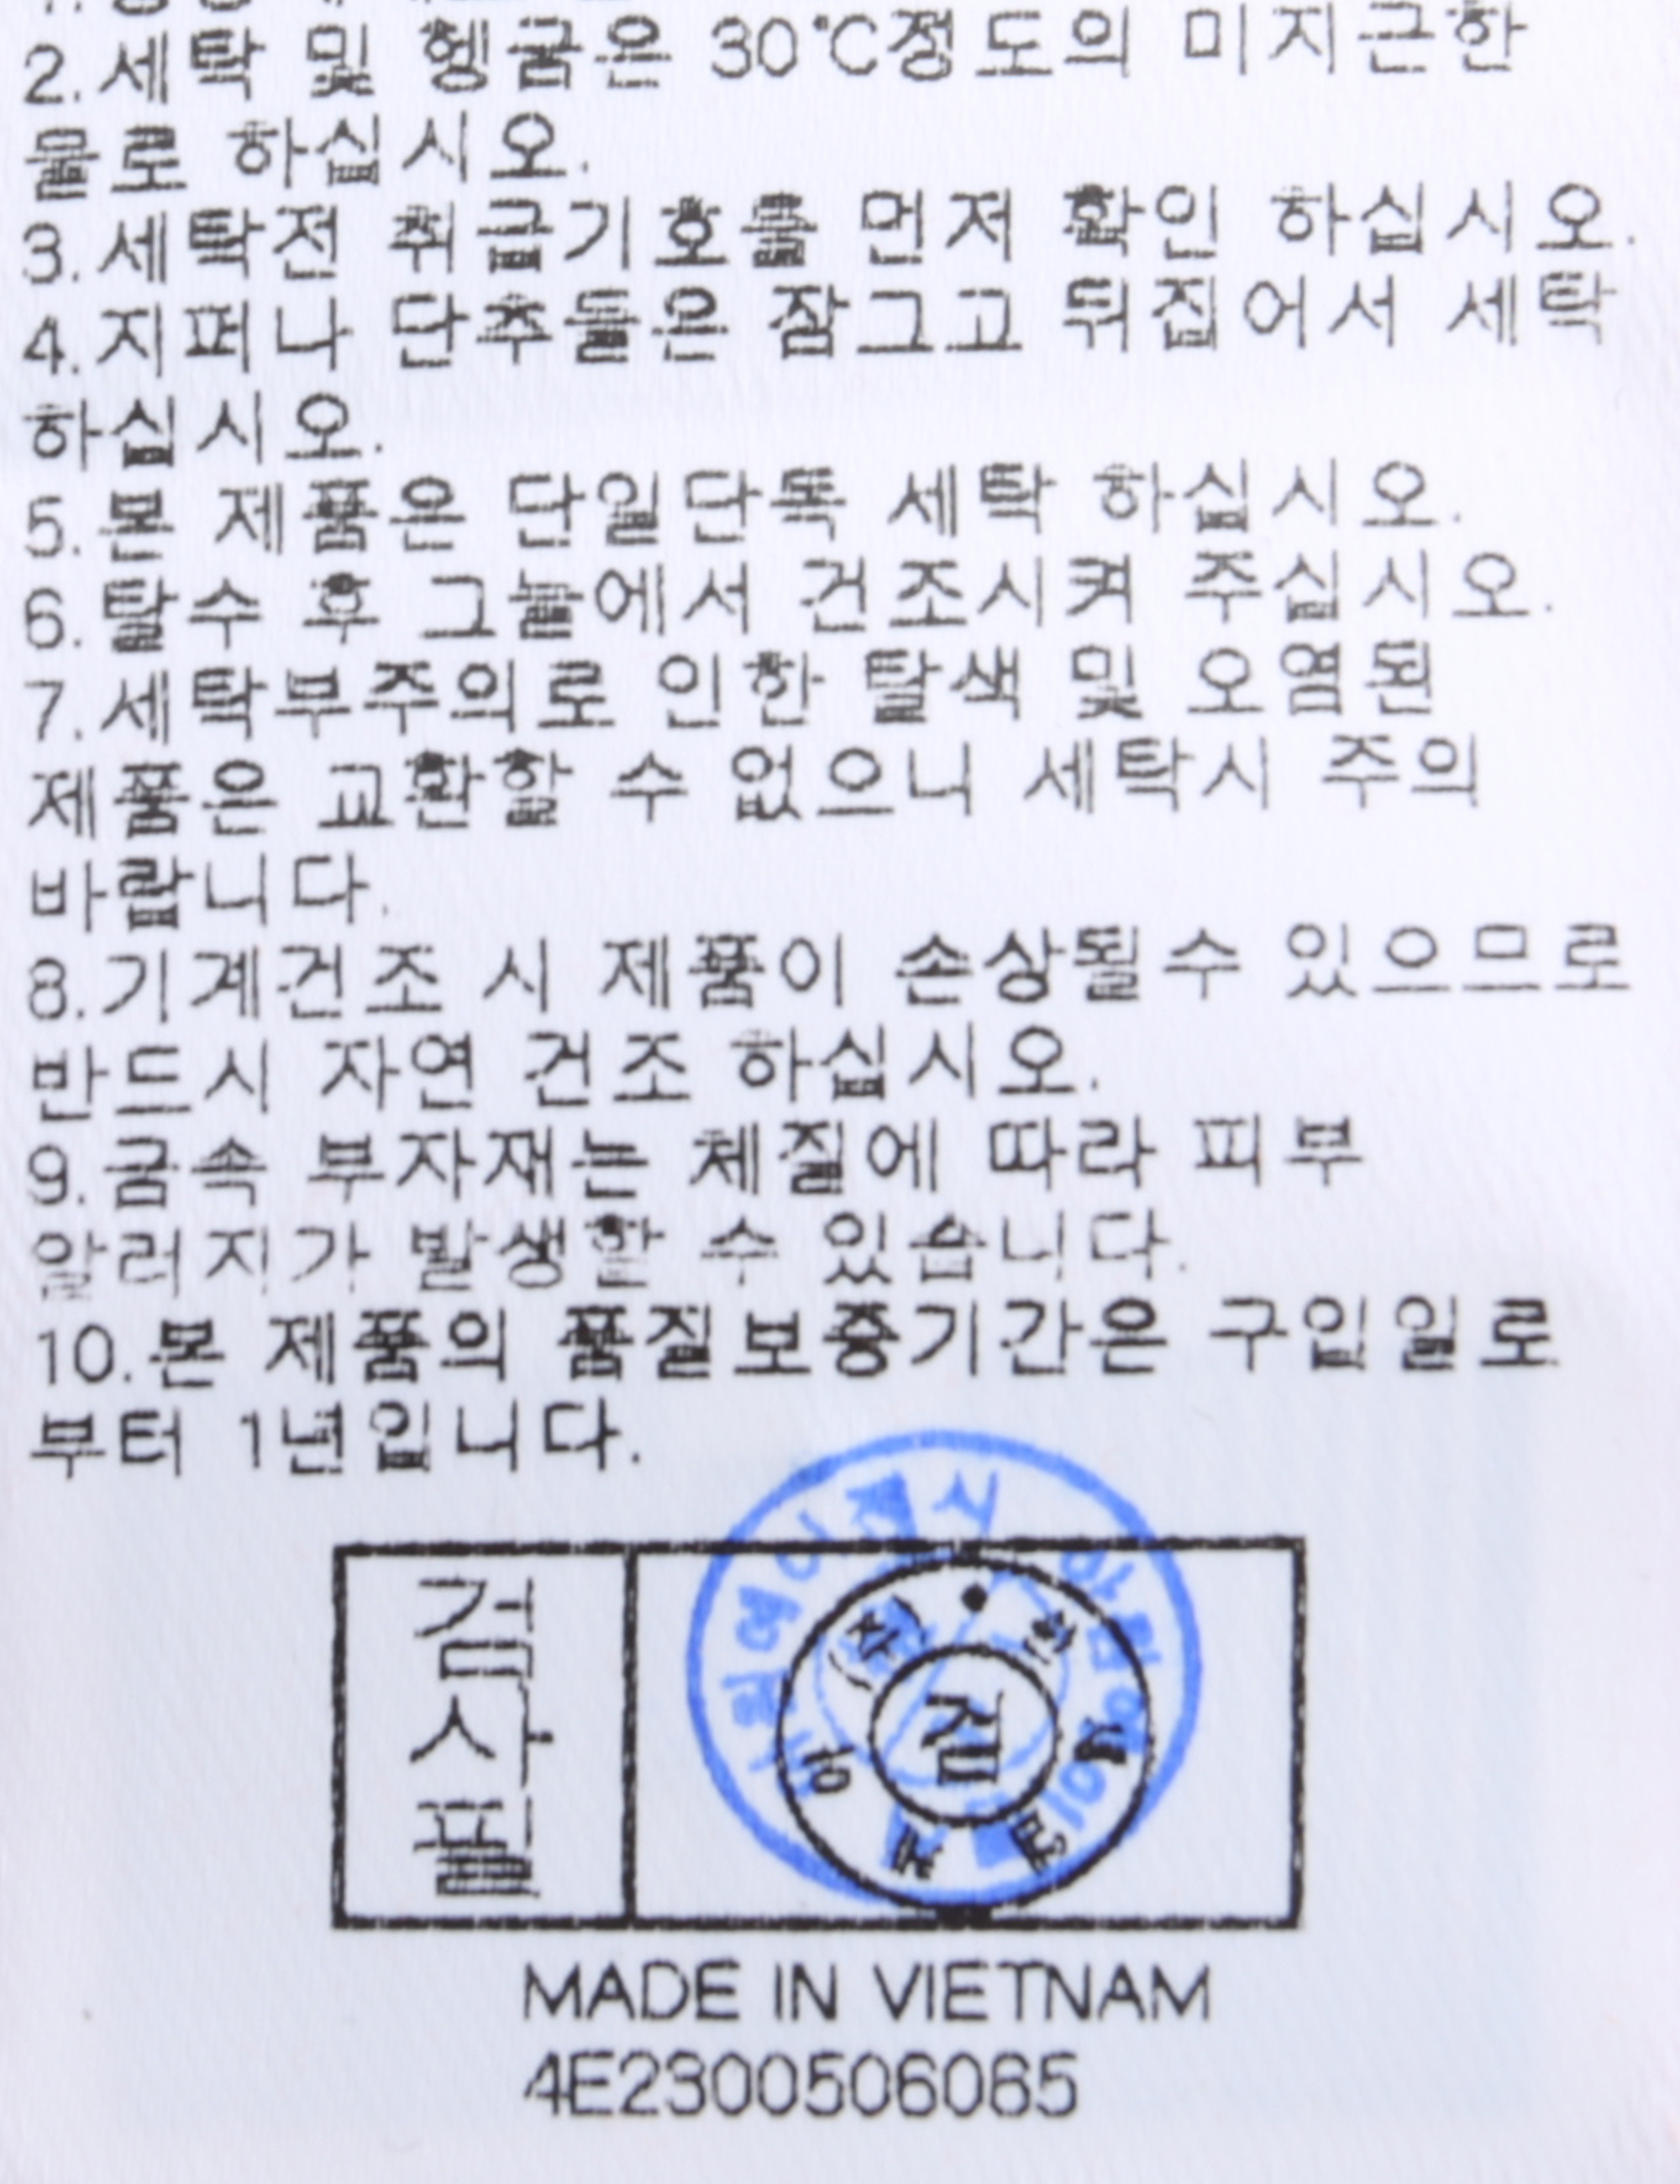 2.세탁 및 헹굼은 30℃정도의 미지근한
물로 하십시오.
3.세탁전 취급기호를 먼저 확인 하십시오.
4.지퍼나 단추들은 잠그고 뒤집어서 세탁
하십시오.
5.본 제품은 단일단독 세탁 하십시오.
6.탈수 후 그늘에서 건조시켜 주십시오.
7.세탁부주의로 인한 탈색 및 오염된
제품은 교환할 수 없으니 세탁시 주의
바랍니다.
8.기계건조 시 제품이 손상될수 있으므로
반드시 자연 건조 하십시오.
9.금속 부자재는 체질에 따라 피부
알러지가 발생할 수 있습니다.
10.본 제품의 품질보증기간은 구입일로
부터 1년입니다.
검사필
검
MADE IN VIETNAM
4E2300506065